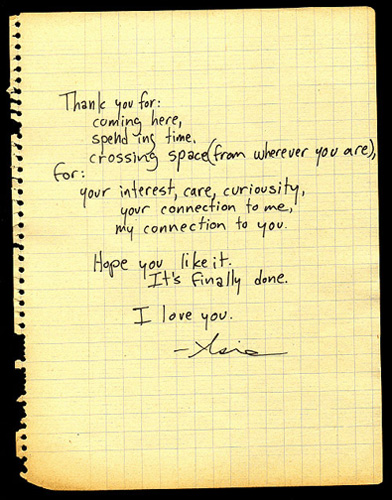 Thank you for:
coming here,
spending time.
crossing space (from wherever you are),
for:
your interest, care, curiousity,
your connection to me,
my connection to you.
Hope you like it.
It's finally done.
I love you.